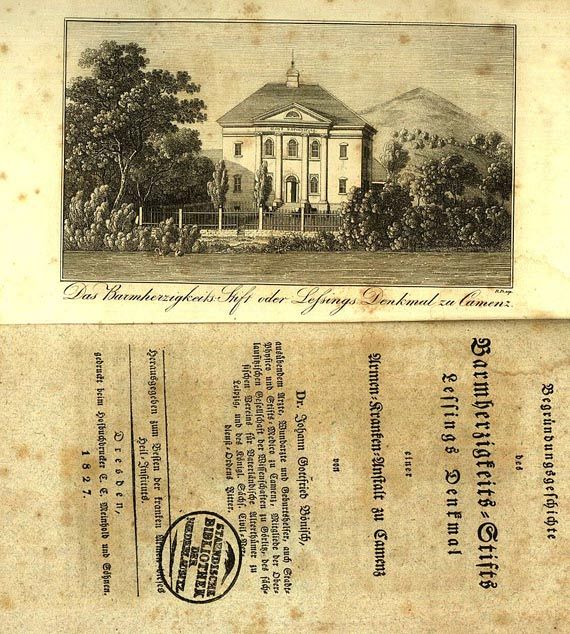 Das Barmherzigkeits-Stift oder Leßings Denkmal zu Camenz.
Begründungsgeschichte
des
Barmherzigkeits-Stifts
Lessings Denkmal
einer
Armen-Kranken-Anstalt zu Camenz
von
Dr. Johann Gottfried Bönisch,
ausübendem Arzte, Wundarzte und Geburtshelfer, auch Stadt-
Physico und Stifts-Medico zu Camenz, Mitgliede der Ober-
lausitzischen Gesellschaft der Wissenschaften zu Görlitz, des säch-
sischen Vereins für Vaterländische Alterthümer zu
Leipzig, und des Königl. Sächs. Civil-Ver-
dienst-Ordens Ritter.
Herausgegeben zum Besten der kranken Armen dieses
Heil-Instituts.
Dresden,
gedruckt beim Hofbuchdrucker C. C. Meinhold und Söhnen.
1827.
STAENDISCHE
BIBLIOTHEK
DER
NIEDERLAUSITZ